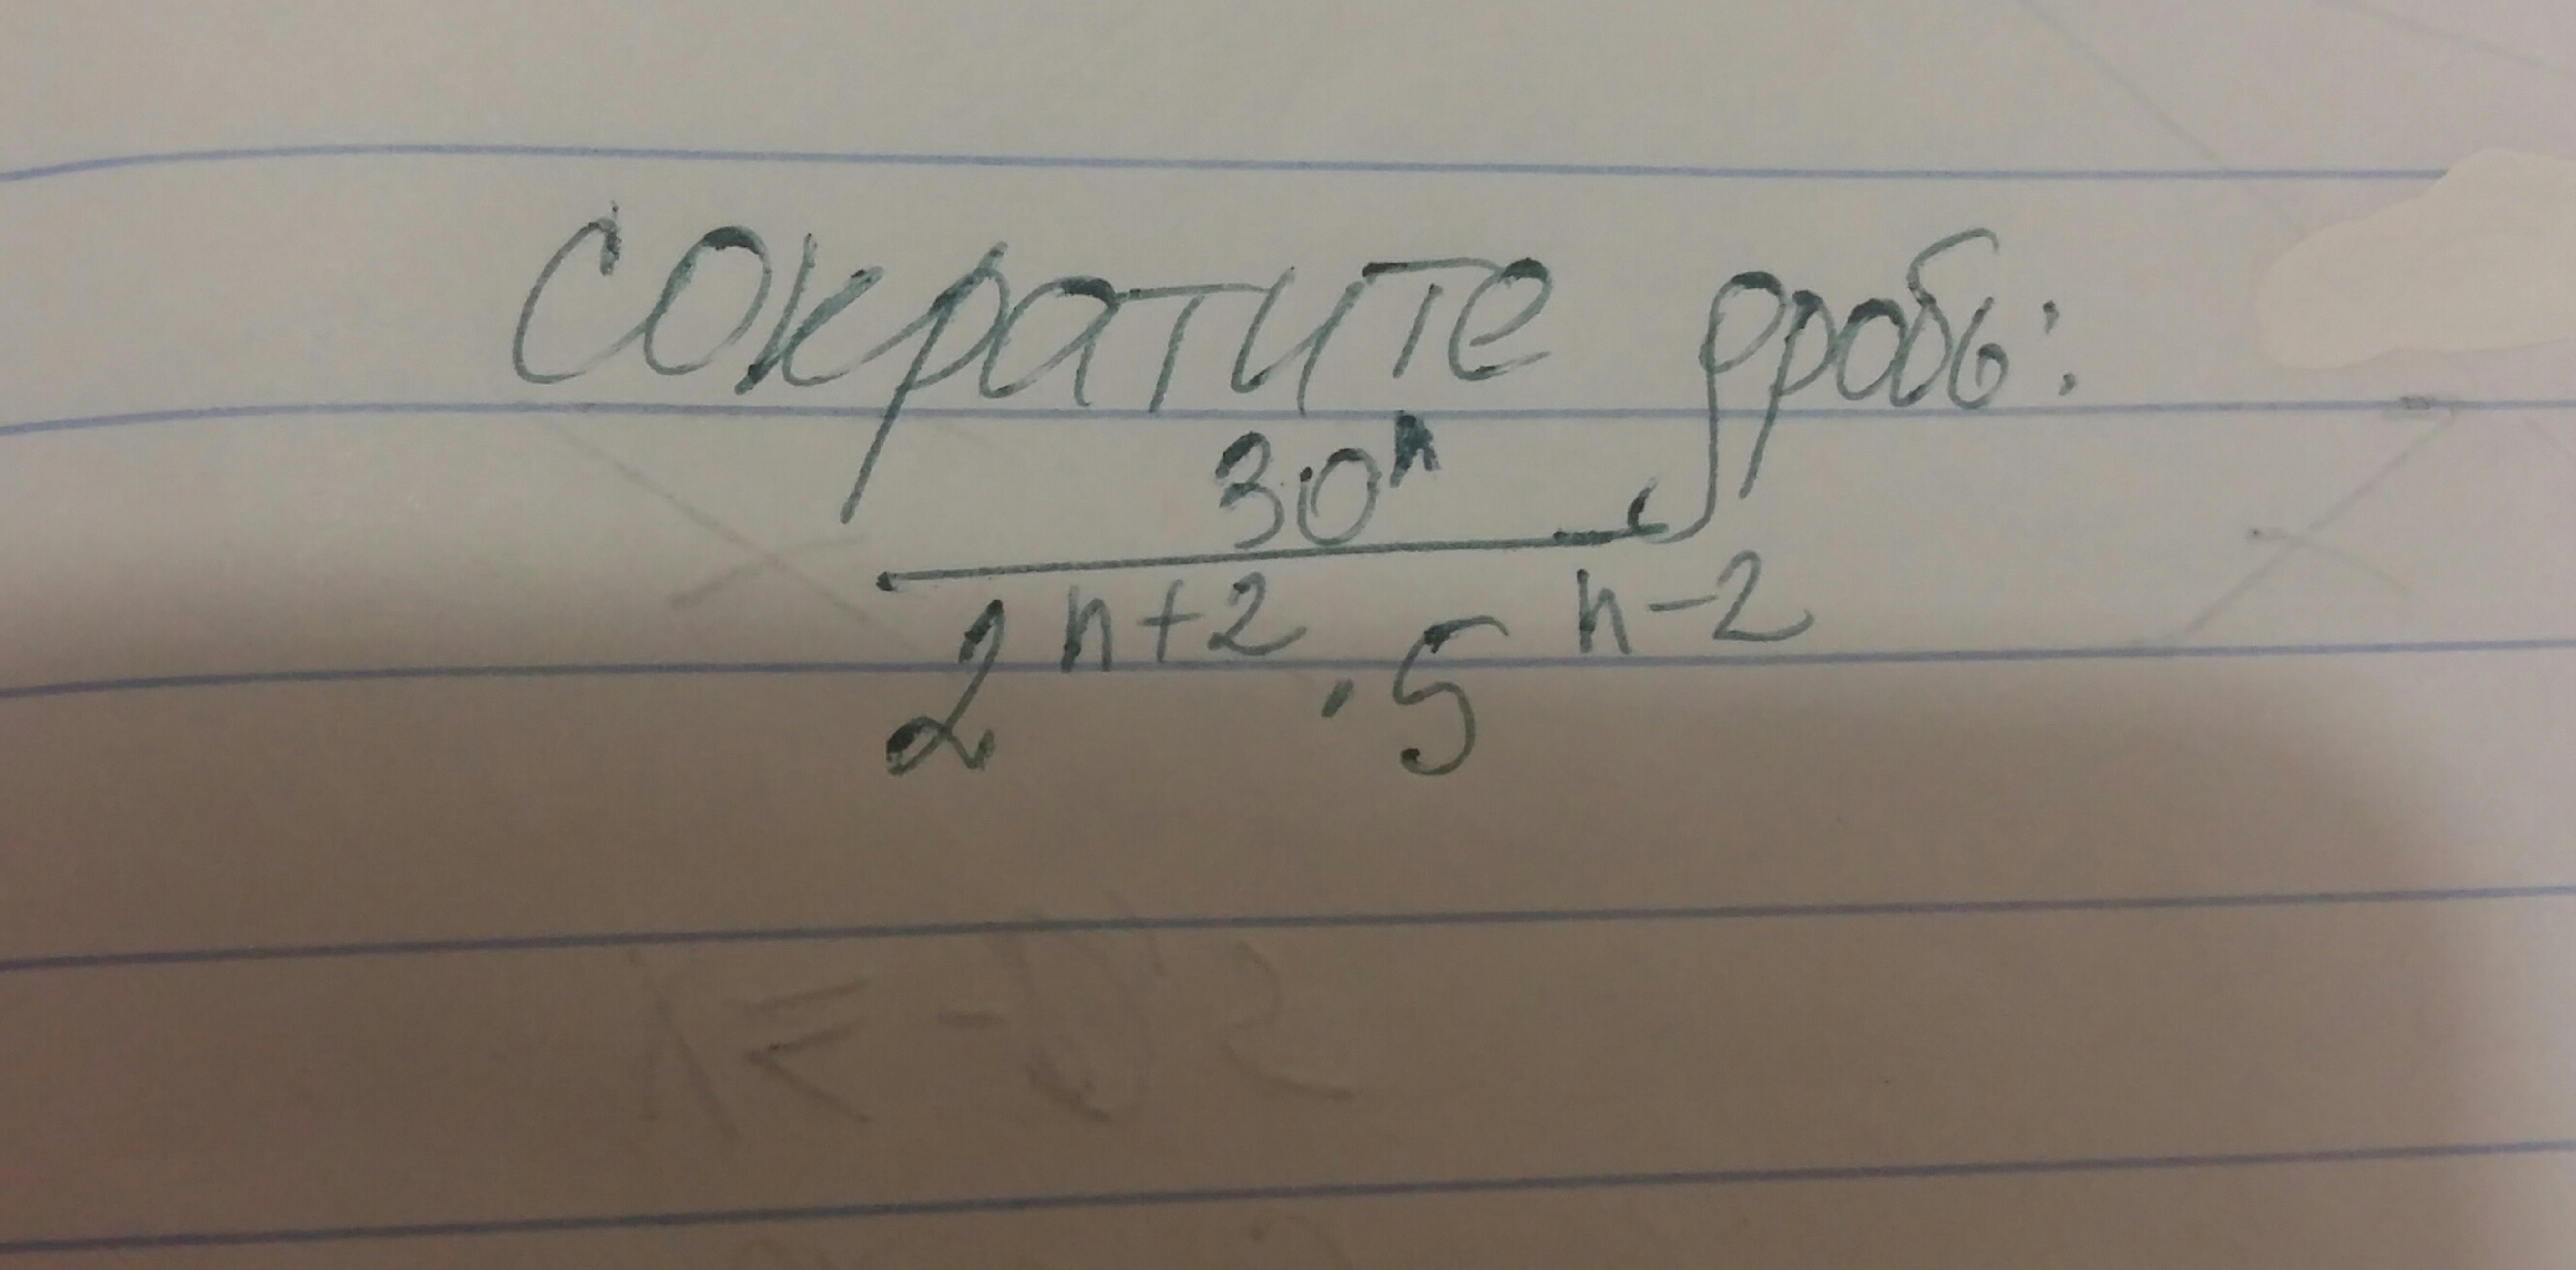 сократите дробь:
30ⁿ
2ⁿ⁺² · 5ⁿ⁻²